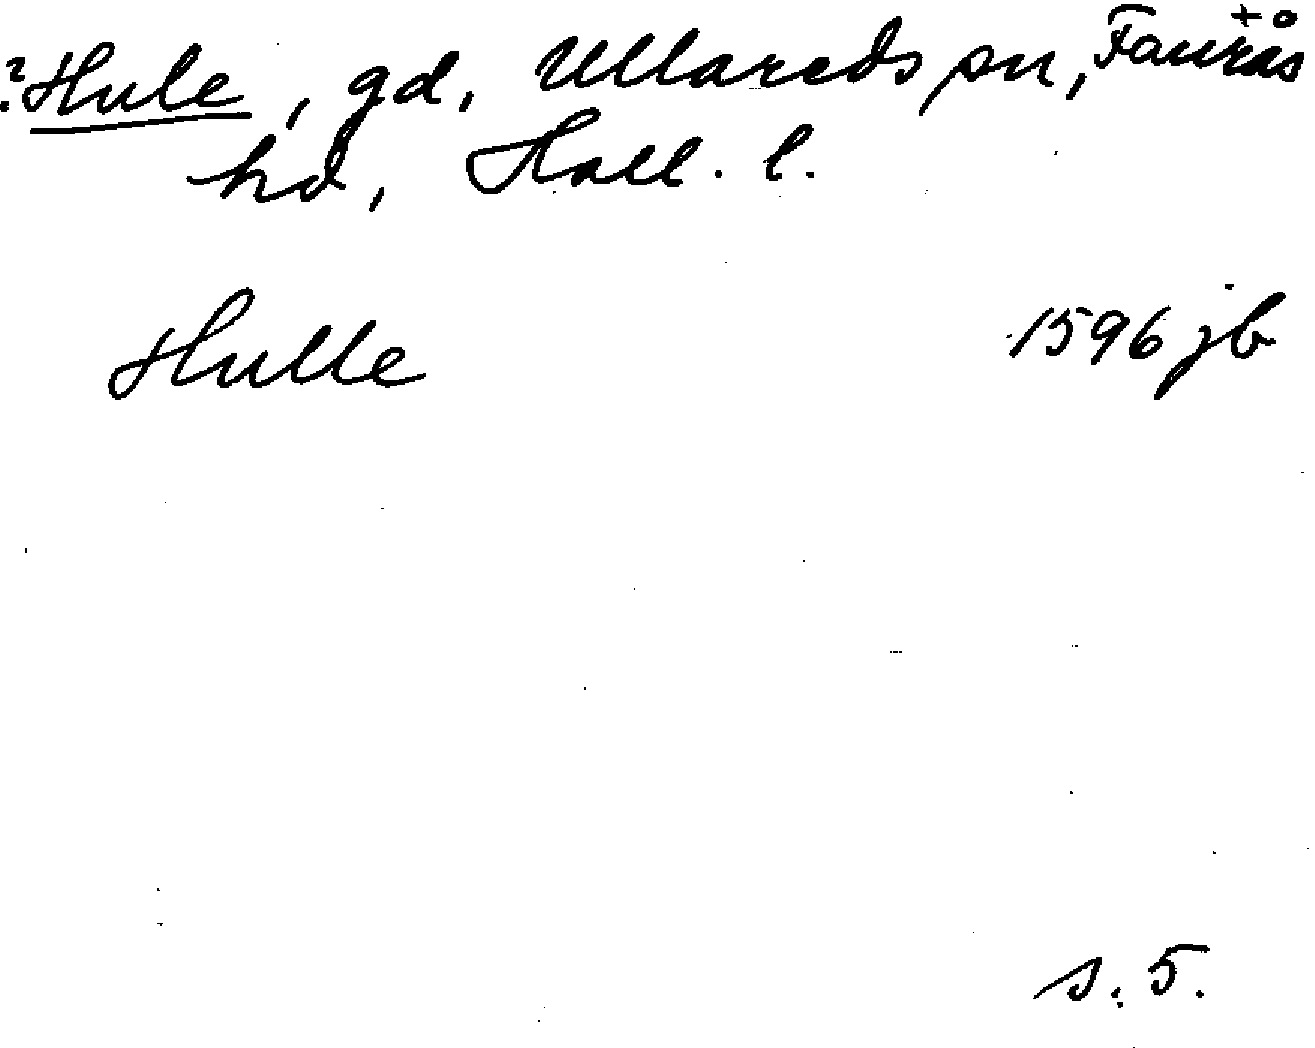 ? Hule, gd, Ullareds sn, Faurås
hd, Hall. l.
Hulle 1596 jb
s. 5.